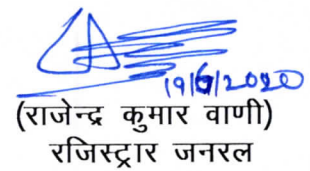 19/6/2020
(राजेन्द्र कुमार वाणी)
रजिस्ट्रार जनरल